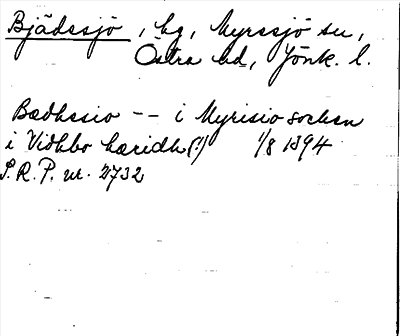 Bjädssjö, by, Myrssjö sn,
Östra hd, Jönk. l.
Bædhssio -- i Myrisio sochen
i Vidhbo hæridh (!) 1/8 1394
S.R.P. nr. 2732